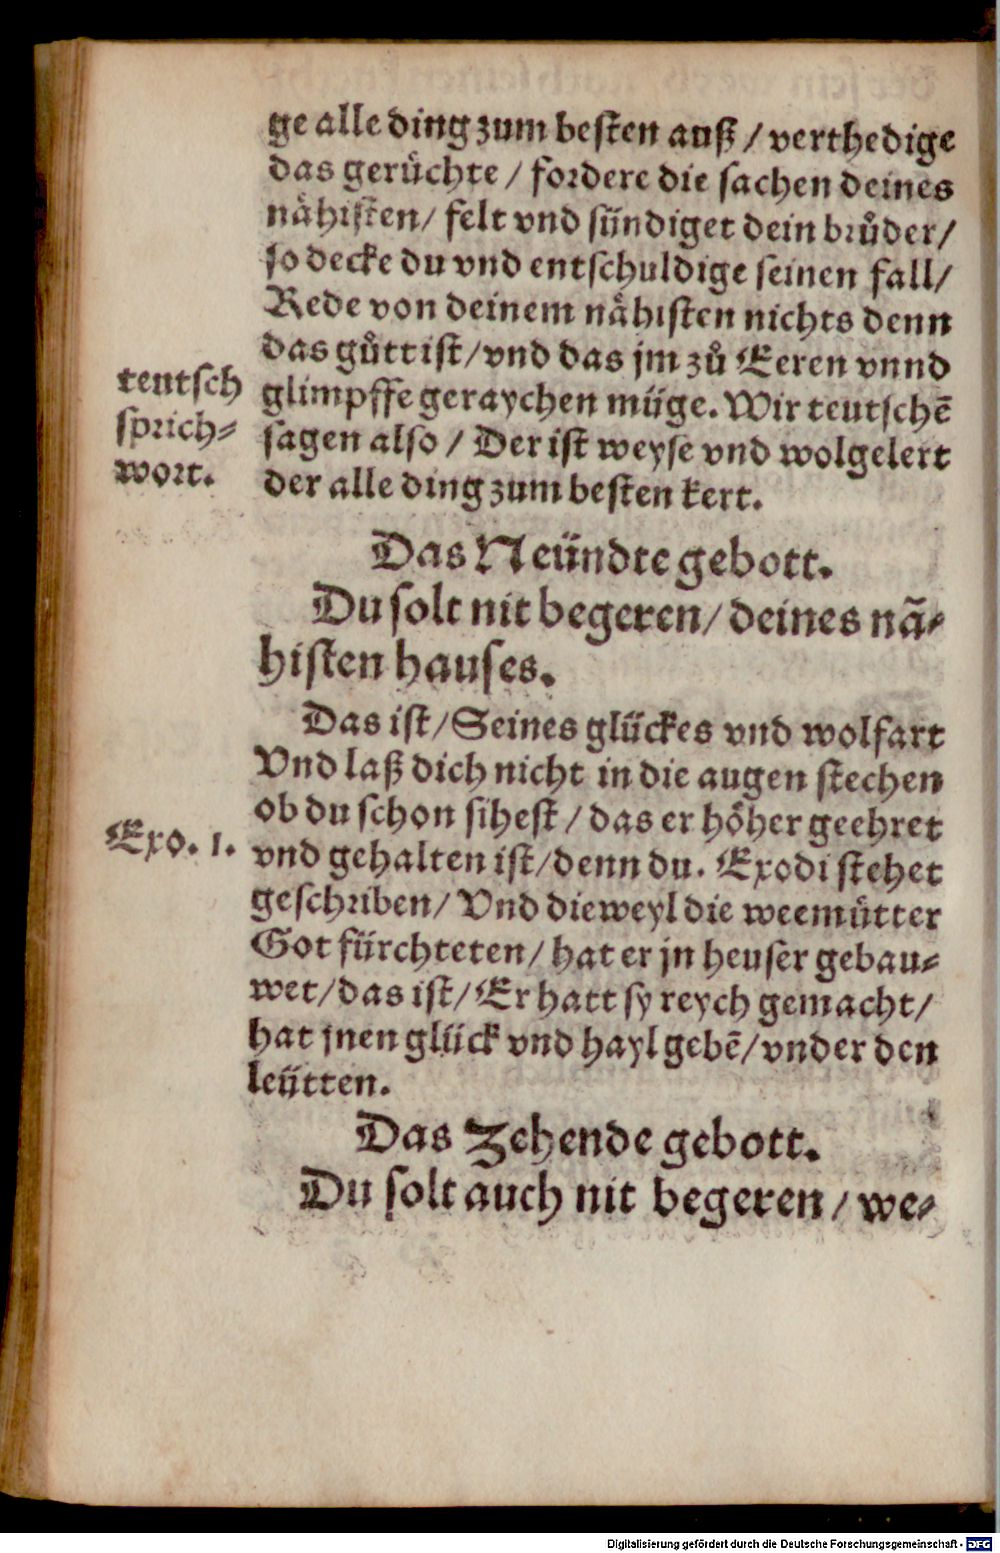 ge alle ding zum besten auß / verthedige
das gerůchte / fordere die sachen deines
nåhisten / felt vnd sündiget dein brůder /
so decke du vnd entschuldige seinen fall /
Rede von deinem nåhisten nichts denn
das gůtt ist / vnd das jm zů Eeren vnnd
glimpffe geraychen müge. Wir teutschē
sagen also / Der ist weyse vnd wolgelert
der alle ding zum besten kert.
teutsch
sprich⸗
wort.
Das Neündte gebott.
Du solt nit begeren / deines nā⸗
histen hauses.
Das ist / Seines glückes vnd wolfart
Vnd laß dich nicht in die augen stechen
ob du schon sihest / das er höher geehret
vnd gehalten ist / denn du. Exodi stehet
geschriben / Vnd dieweyl die weemütter
Got fürchteten / hat er jn heuser gebau⸗
wet / das ist / Er hatt sy reych gemacht /
hat jnen glück vnd hayl gebē / vnder den
leütten.
Exo. 1.
Das Zehende gebott.
Du solt auch nit begeren / we⸗
Digitalisierung gefördert durch die Deutsche Forschungsgemeinschaft - DFG